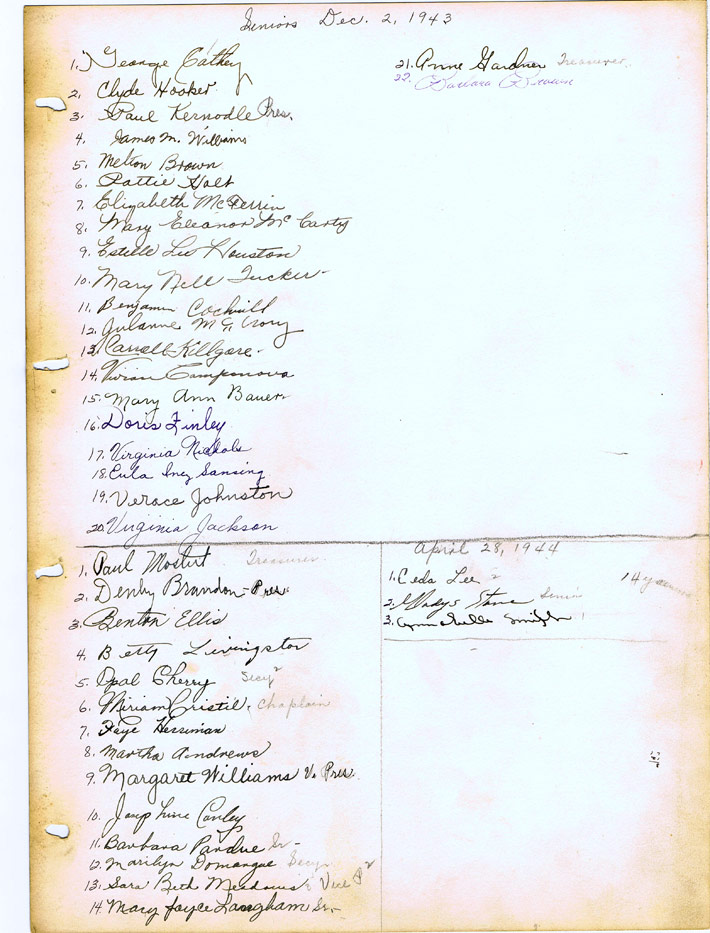 Seniors Dec. 2, 1943
1. George Cathey
2. Clyde Hooker
3. Paul Kernodle Pres.
4. James M. Williams
5. Melton Brown
6. Pattie Holt
7. Elizabeth McFerrin
8. Mary Eleanor McCarty
9. Estelle Lee Houston
10. Mary Nell Tucker
11. Benjamin Cockrill
12. Julanne McCrory
13. Carroll Killgore
14. Vivian Campenova
15. Mary Ann Bauer
16. Doris Finley
17. Virginia Nichols
18. Eula Inez Sansing
19. Verace Johnston
20. Virginia Jackson
21. Anne Gardner Treasurer
22. Barbara Brown
1. Paul Mostert Treasurer
2. Denby Brandon - Pres.
3. Benton Ellis
4. Betty Livingston
5. Opal Cherry Secy 2
6. Miriam Cristil, Chaplain
7. Faye Herriman
8. Martha Andrews
9. Margaret Williams V. Pres.
10. Josephine Conley
11. Barbara Pardue Sr-
12. Marilyn Domangue Secy
13. Sara Beth Meadows Vice P 2
14. Mary Joyce Langham Sr.-
April 28, 1944
1. Ceda Lee 2 14 years
2. Gladys Stone Senior
3. Smith